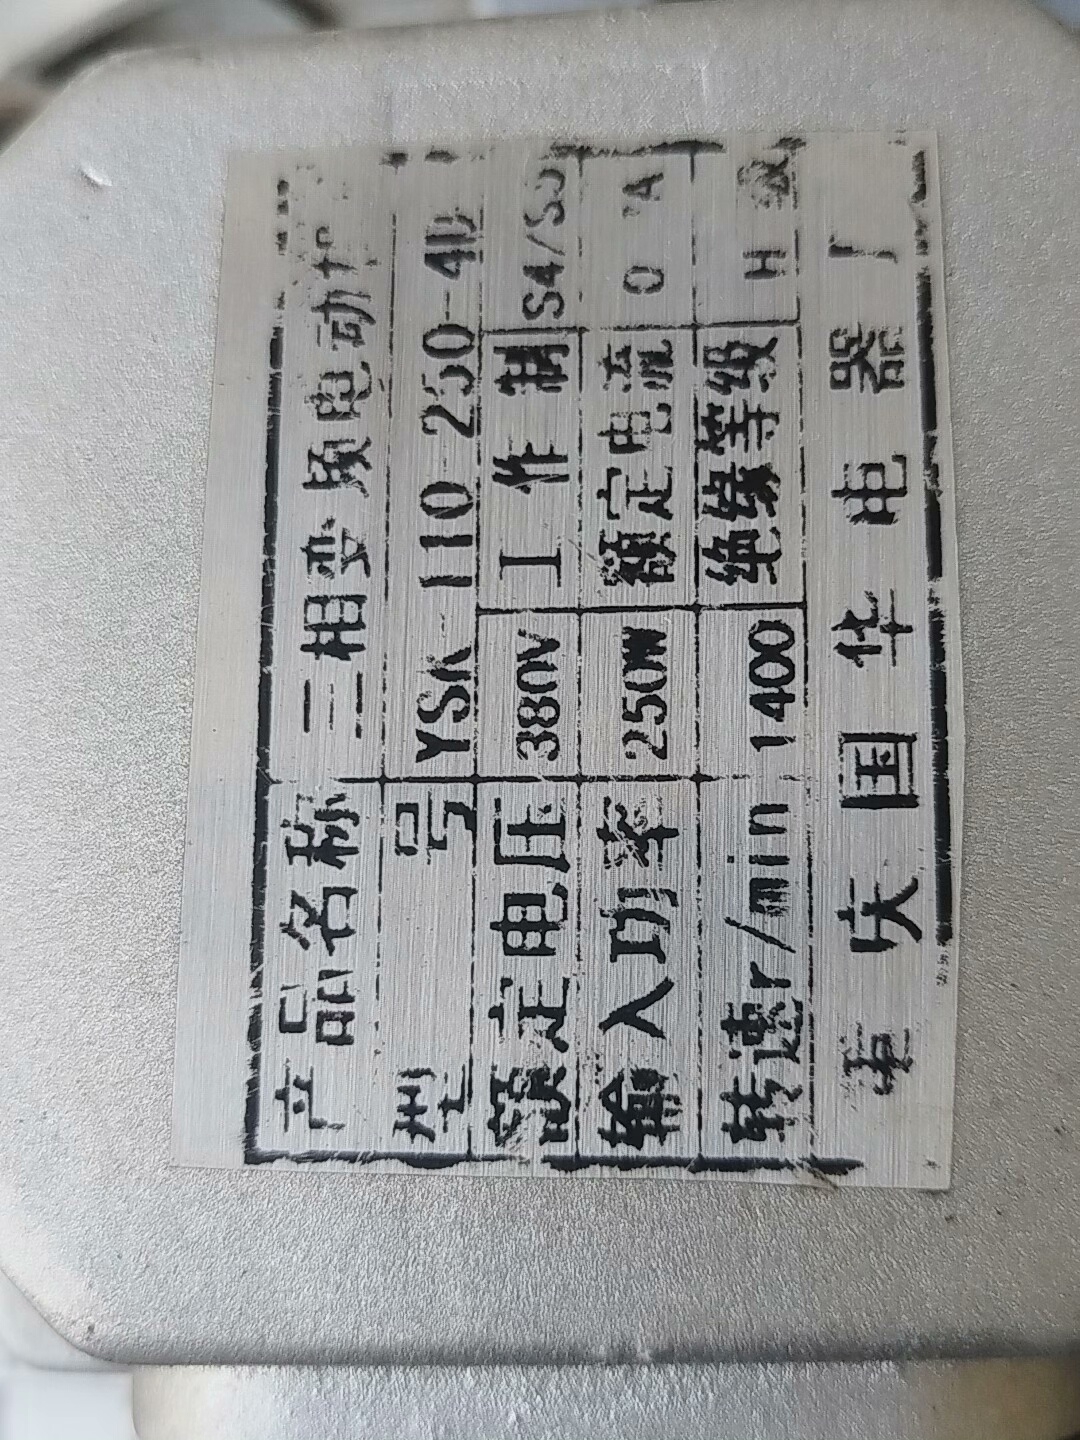 产品名称 三相变频电动
型号 YSK 110-250-4D
额定电压 380V 工作制 S4/S5
输入功率 250W 额定电流 A
转速r/min 1400 绝缘等级 H 级
重庆国华电器厂